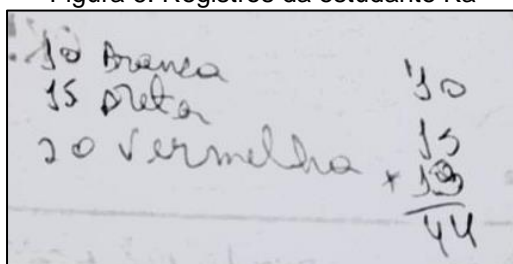 Figura 6: Registros da estudante Ra
10 Branca
15 preta
20 Vermelha
10
15
+ 19
44